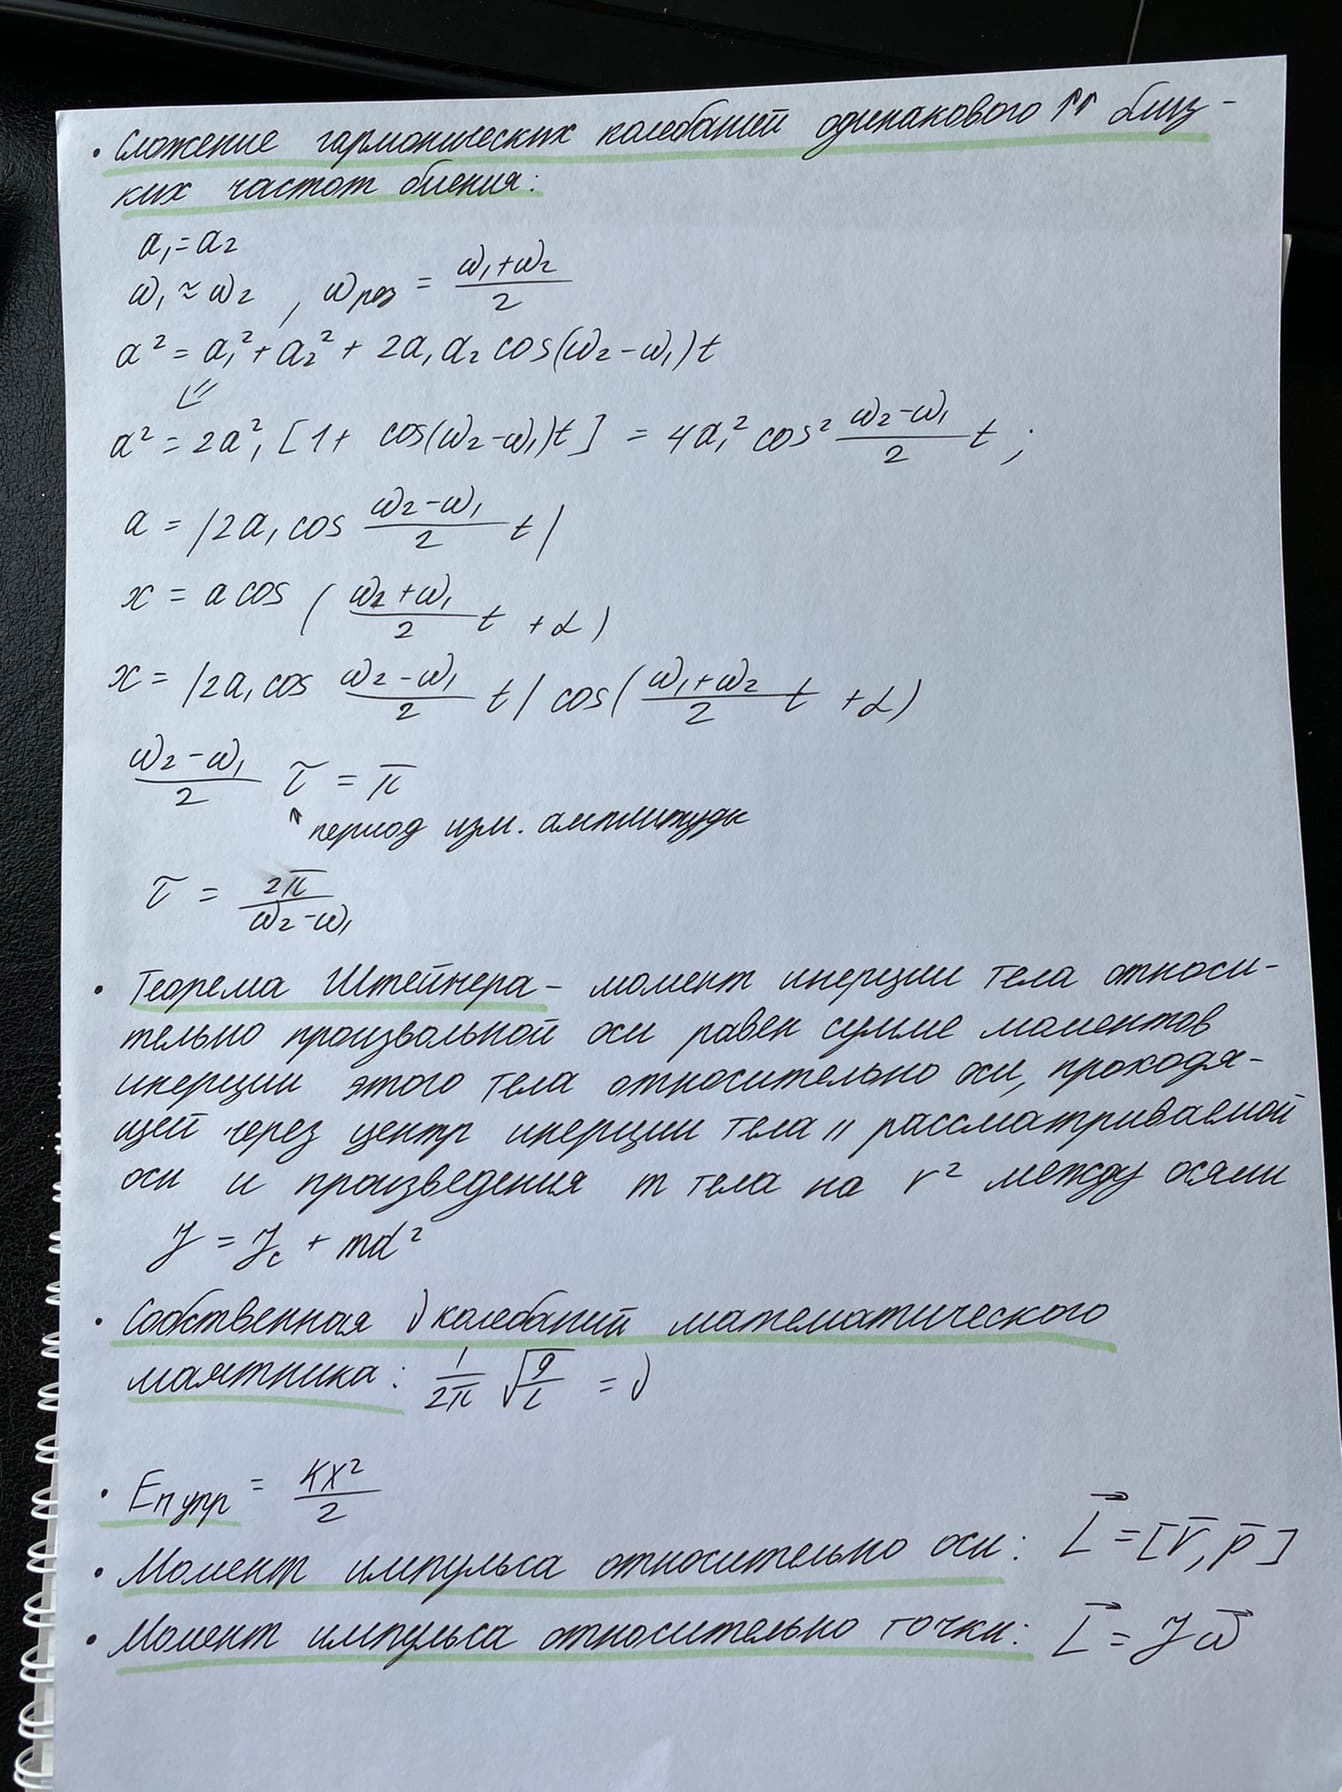 • Сложение гармонических колебаний одинакового ↑↑ близ-
ких частот биения:
a₁=a₂
ω₁≈ω₂ , ωрез = (ω₁+ω₂)/2
a² = a₁²+a₂²+ 2a₁a₂ cos(ω₂-ω₁)t
⇙
a² = 2a₁² [1+ cos(ω₂-ω₁)t] = 4a₁² cos² (ω₂-ω₁)/2 t ;
a = |2a₁ cos (ω₂-ω₁)/2 t|
x = a cos ( (ω₂+ω₁)/2 t +α)
x = |2a₁ cos (ω₂-ω₁)/2 t| cos( (ω₁+ω₂)/2 t +α)
(ω₂-ω₁)/2 τ = π
↑ период изм. амплитуды
τ = 2π/(ω₂-ω₁)
• Теорема Штейнера – момент инерции тела относи-
тельно произвольной оси равен сумме моментов
инерции этого тела относительно оси, проходя-
щей через центр инерции тела || рассматриваемой
оси и произведения m тела на r² между осями
J = Jc + md²
• Собственная ν колебаний математического
маятника: 1/2π √(g/l) = ν
• Eп упр = kx²/2
• Момент импульса относительно оси: L⃗ = [r̅, p̅]
• Момент импульса относительно точки: L⃗ = Jω⃗